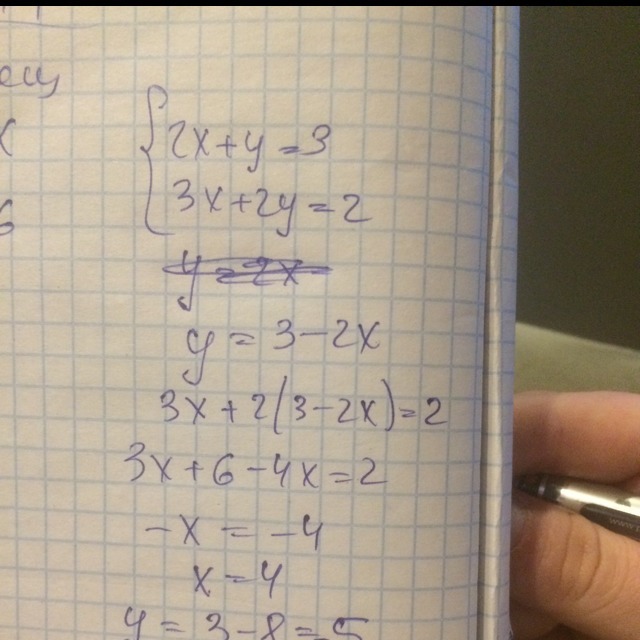 ещ
2x+y=3
3x+2y=2
y=2x
y = 3-2x
3x+2(3-2x)=2
3x+6-4x=2
-x = -4
x=4
y = 3-8=-5